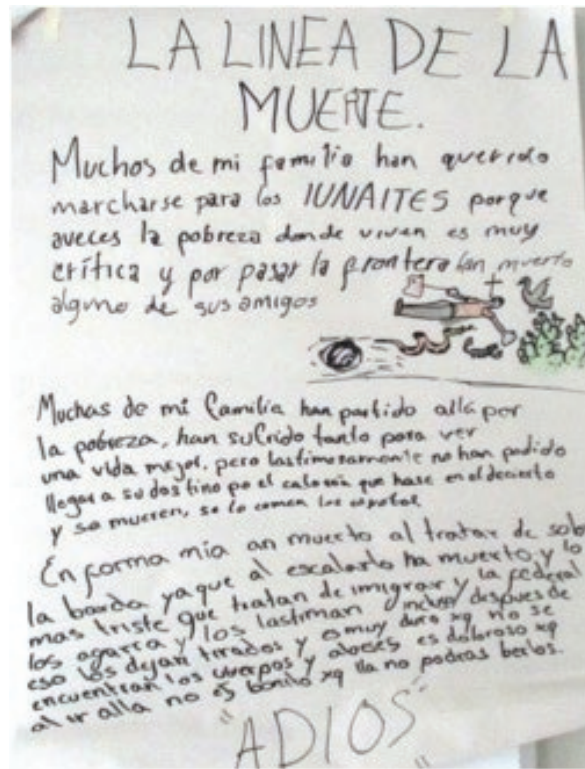 LA LINEA DE LA
MUERTE.
Muchos de mi familia han querido
marcharse para los IUNAITES porque
aveces la pobreza donde viven es muy
crítica y por pasar la frontera han muerto
alguno de sus amigos
Muchas de mi familia han partido allá por
la pobreza, han sufrido tanto para ver
una vida mejor, pero lastimosamente no han podido
llegar a su destino po el calor que hase en el decierto
y se mueren, se lo comen los coyotes.
En forma mia an muerto al tratar de
la barda ya que al escalarlo ha muerto y lo
mas triste que tratan de imigrar y la federal
los agarra y los lastiman y despues de
eso los dejan tirados y es muy duro xq no se
encuentran los cuerpos y aveces es doloroso xq
al ir alla no es bonito xq lla no podras berlos.
"ADIOS"